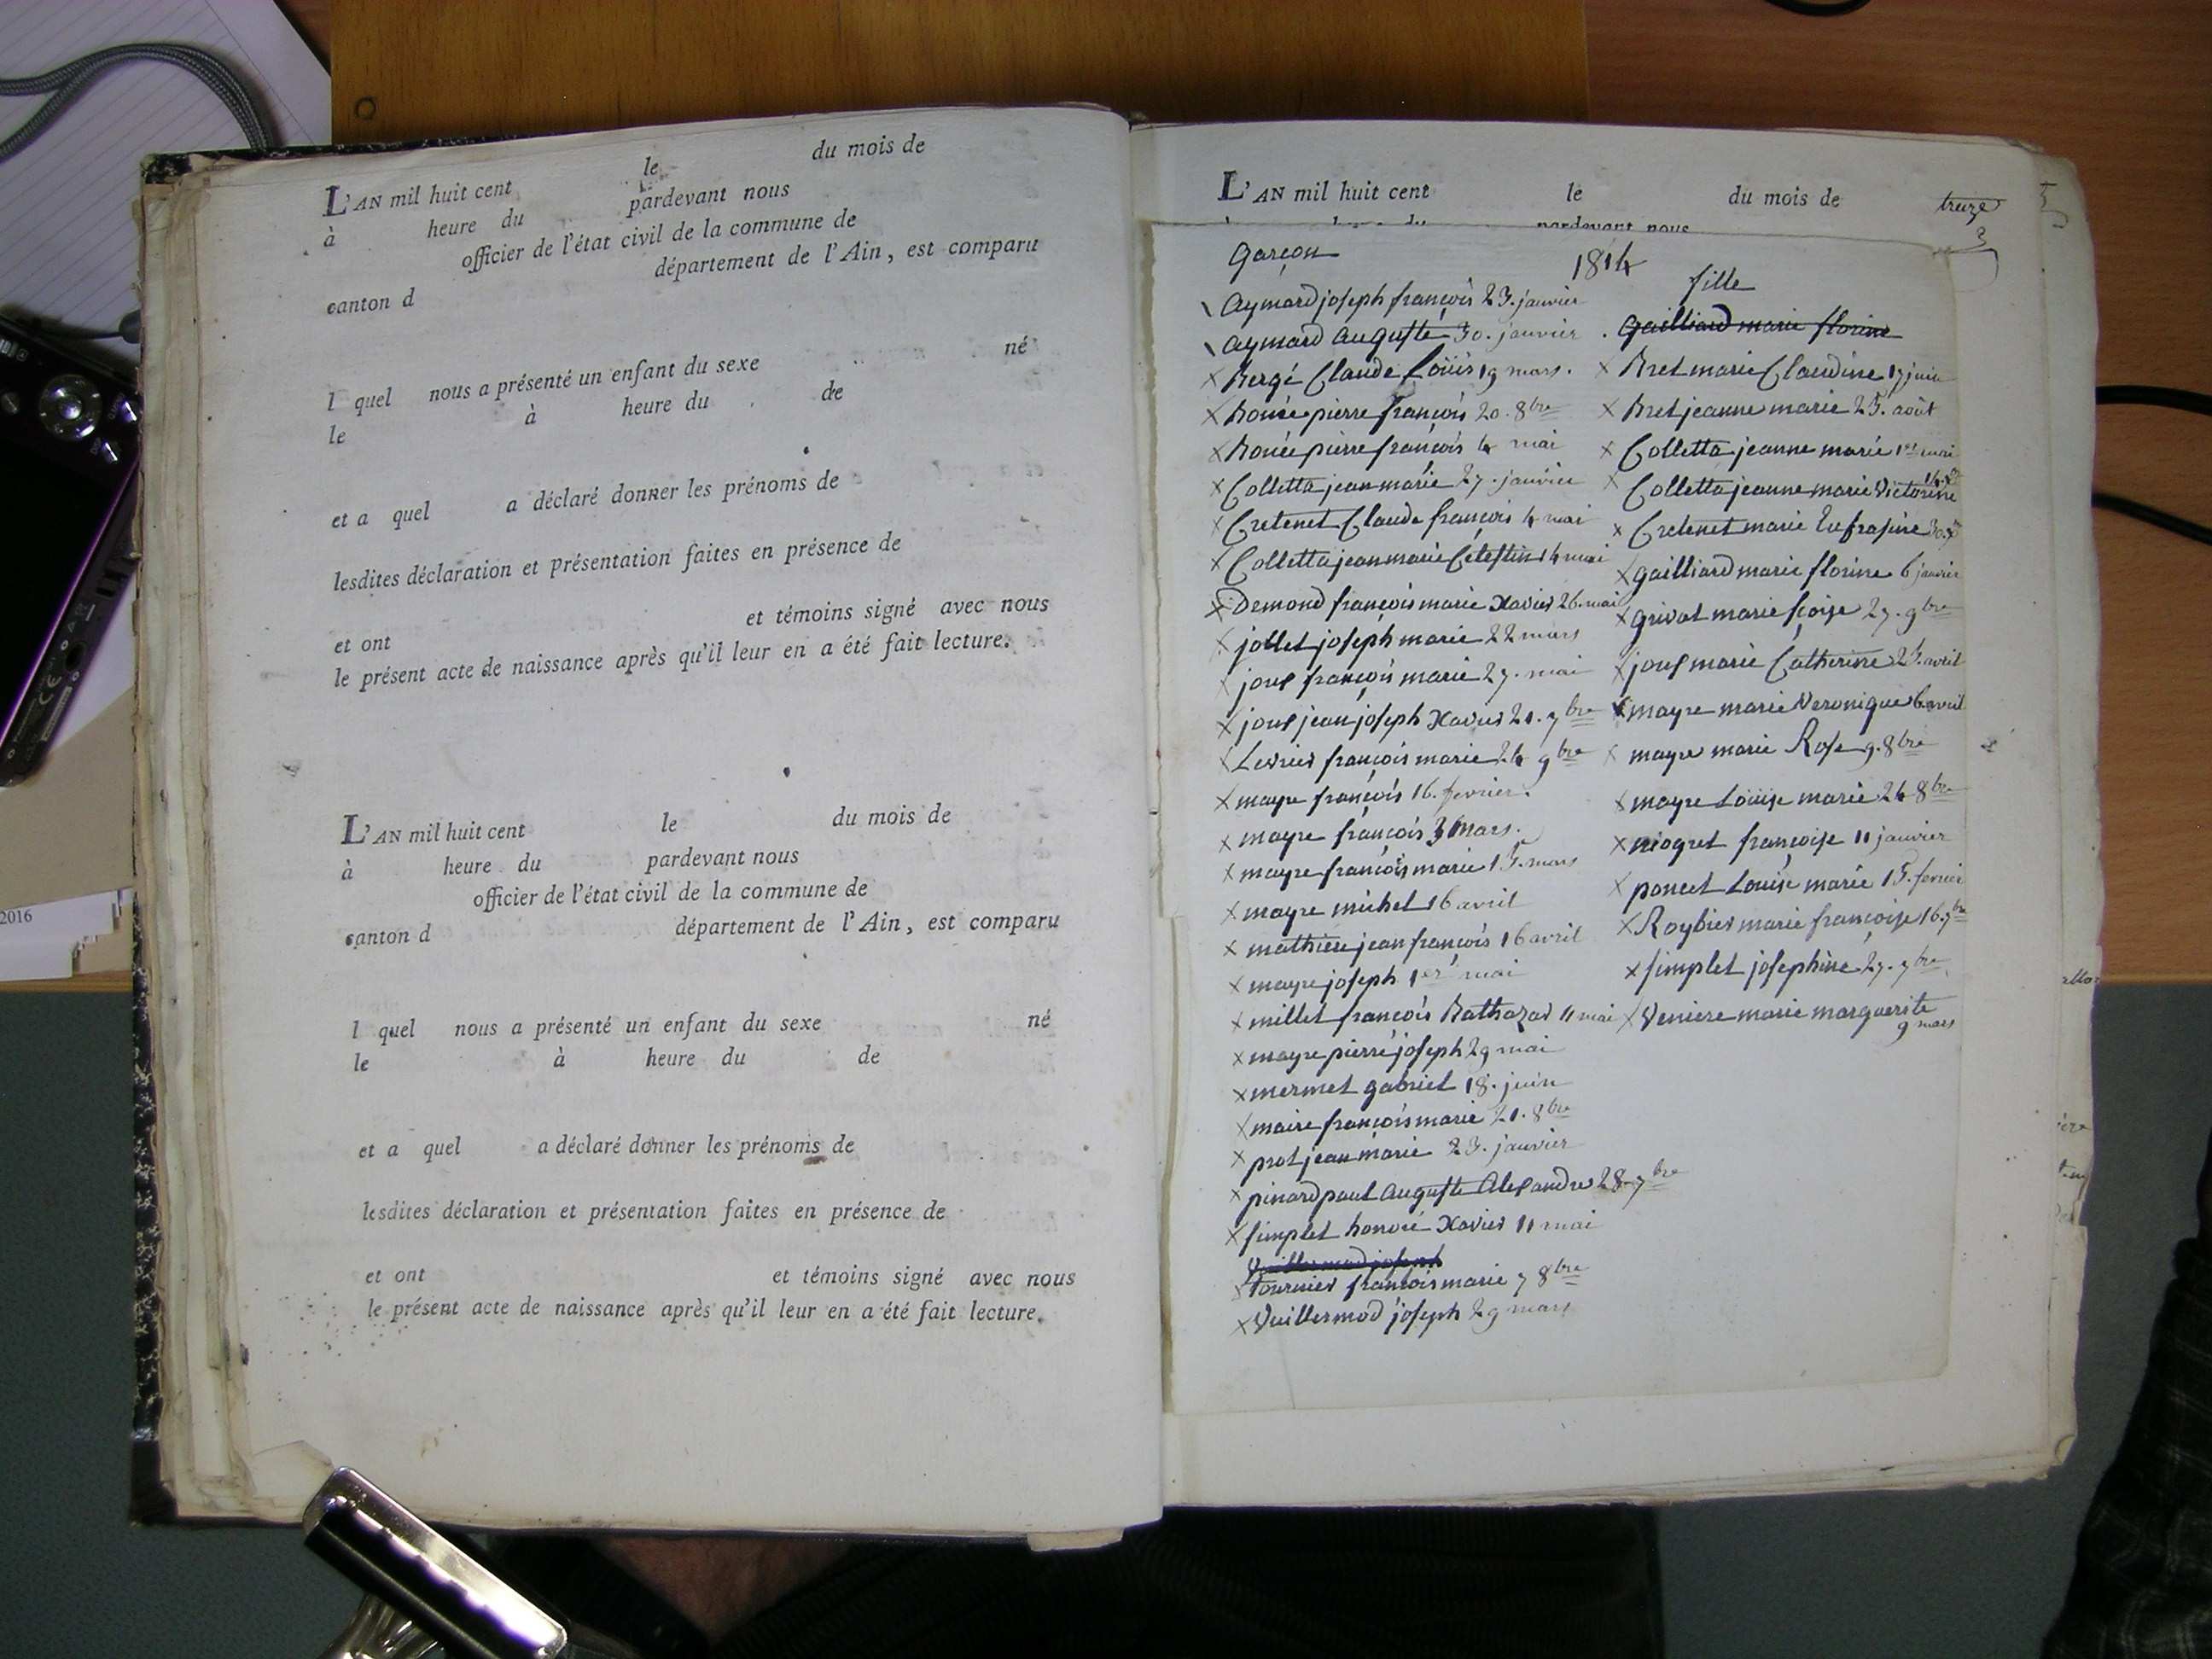 le du mois de
L'AN mil huit cent pardevant nous
à heure du
officier de l'état civil de la commune de
canton d département de l'Ain, est comparu
l quel nous a présenté un enfant du sexe né
le à heure du de
et a quel a déclaré donner les prénoms de
lesdites déclaration et présentation faites en présence de
et ont et témoins signé avec nous
le présent acte de naissance après qu'il leur en a été fait lecture.
L'AN mil huit cent le du mois de
à heure du pardevant nous
officier de l'état civil de la commune de
canton d département de l'Ain, est comparu
l quel nous a présenté un enfant du sexe né
le à heure du de
et a quel a déclaré donner les prénoms de
lesdites déclaration et présentation faites en présence de
et ont et témoins signé avec nous
le présent acte de naissance après qu'il leur en a été fait lecture.
2016
L'AN mil huit cent le du mois de
treize
pardevant nous
1814
garçon
aymard joseph françois 23. janvier
aymard auguste 30. janvier
Bergé Claude Loüis 19 mars.
Bonée pierre françois 20. 8bre
Bonée pierre françois 4 mai
Colletta jean marie 27. janvier
Cretenet Claude françois 4 mai
Colletta jean marie Célestin 14 mai
Demond françois marie Xavier 26. mai
jollet joseph marie 22 mars
joux françois marie 27. mai
joux jean joseph Xavier 21. 7bre
Levrier françois marie 24 9bre
mayre françois 16. fevrier.
mayre françois 3 mars.
mayre françois marie 15. mars
mayre michel 16 avril
mathieu jean françois 16 avril
mayre joseph 1er mai
millet françois Bathazar 11 mai
mayre pierre joseph 29 mai
mermet gabriel 18. juin
maire françois marie 21. 8bre
prot jean marie 23. janvier
pinard paul auguste Alexandre 28. 7bre
simplet honoré Xavier 11 mai
Vuillermod joseph
tournier françois marie 7 8bre
Vuillermod joseph 29 mars
fille
gailliard marie florine
Bret marie Claudine 17 juin
Bret jeanne marie 25. août
Colletta jeanne marie 1er mai
Colletta jeanne marie Victorine
Cretenet marie Eufrasine
gailliard marie florine 6 janvier
grivat marie fçoise 27. 9bre
joux marie Catherine 25. avril
mayre marie Veronique 6 avril
mayre marie Rose 9. 8bre
mayre Loüise marie 24 8bre
niogret françoise 11 janvier
poncet Louise marie 15. fevrier
Roybier marie françoise 16. 7bre
simplet josephine 27. 7bre
Veniere marie marguerite
9 mars